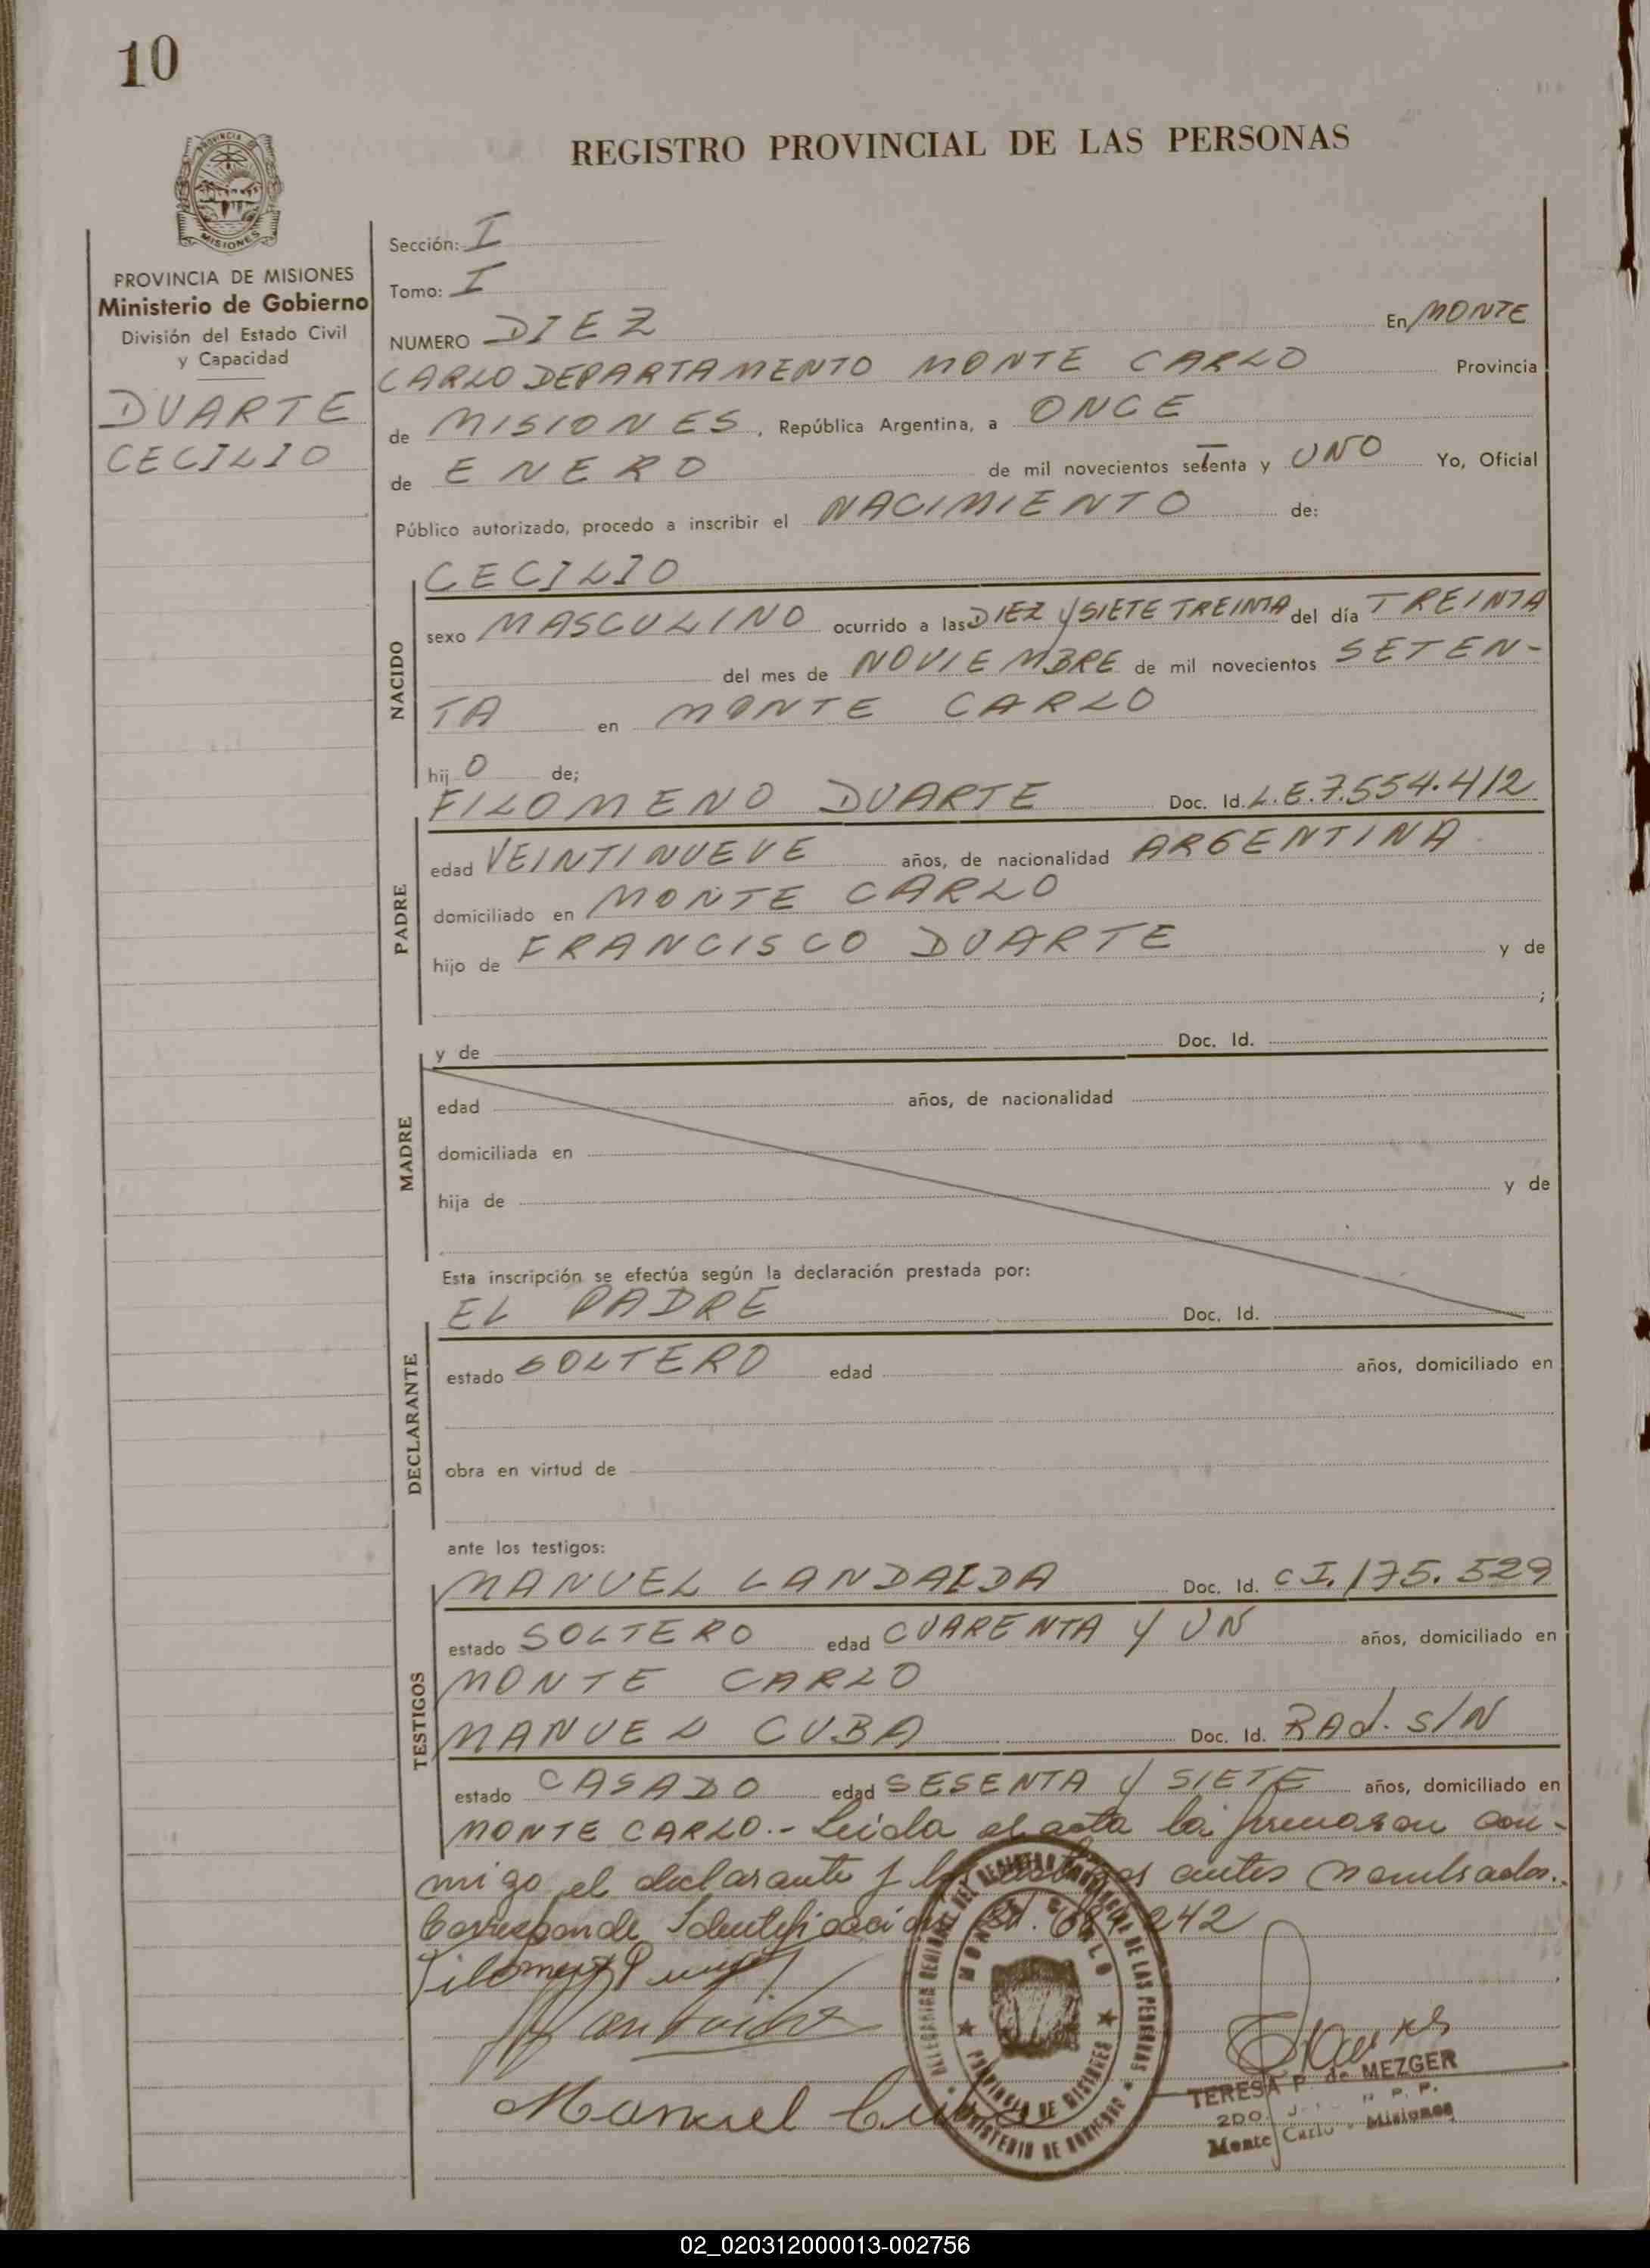 10
REGISTRO PROVINCIAL DE LAS PERSONAS
PROVINCIA
MISIONES
PROVINCIA DE MISIONES
Ministerio de Gobierno
División del Estado Civil
y Capacidad
DUARTE
CECILIO
Sección: I
Tomo: I
NUMERO DIEZ En MONTE
CARLO DEPARTAMENTO MONTE CARLO Provincia
de MISIONES, República Argentina, a ONCE
de ENERO de mil novecientos setenta y UNO Yo, Oficial
Público autorizado, procedo a inscribir el NACIMIENTO de:
NACIDO
CECILIO
sexo MASCULINO ocurrido a las DIEZ y SIETE TREINTA del día TREINTA
del mes de NOVIEMBRE de mil novecientos SETEN-
TA en MONTE CARLO
hij O de;
PADRE
FILOMENO DUARTE Doc. Id. L.E.7.554.412
edad VEINTINUEVE años, de nacionalidad ARGENTINA
domiciliado en MONTE CARLO
hijo de FRANCISCO DUARTE y de
;
MADRE
y de Doc. Id.
edad años, de nacionalidad
domiciliada en
hija de y de
Esta inscripción se efectúa según la declaración prestada por:
DECLARANTE
EL PADRE Doc. Id.
estado SOLTERO edad años, domiciliado en
obra en virtud de
ante los testigos:
TESTIGOS
MANUEL LANDAIDA Doc. Id. CI. 175.529
estado SOLTERO edad CUARENTA Y UN años, domiciliado en
MONTE CARLO
MANUEL CUBA Doc. Id. RAd. S/N
estado CASADO edad SESENTA y SIETE años, domiciliado en
MONTE CARLO.- Leida el acta la firmaron con-
migo el declarante y los antes nombrados.
Corresponde Identificación
242
Manuel Cuba
MONTE CARLO
PROVINCIA DE MISIONES
DE LAS PERSONAS
TERESA P. de MEZGER
Monte Carlo - Misiones
02_020312000013-002756